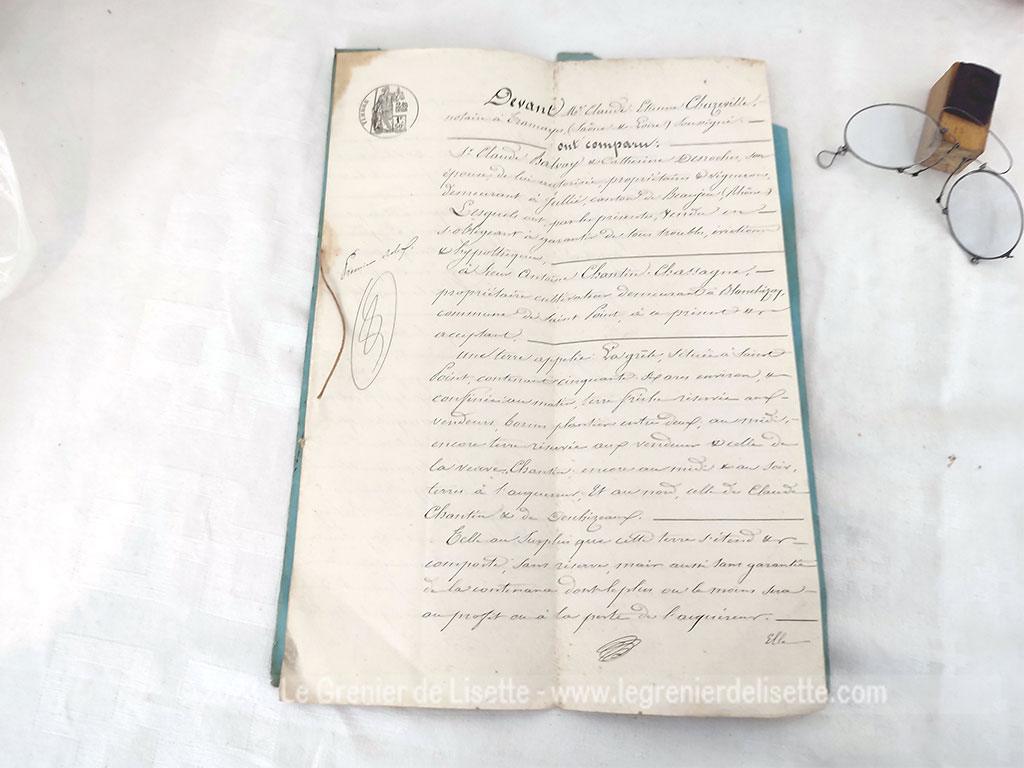 Devant Me Claude Etienne Chuzeville,
notaire à Tramayes (Saône & Loire) soussigné
ont comparu:
Sr Claude Balvay & Catherine Desroches, son
épouse, de lui autorisée, propriétaires & vignerons,
demeurant à Jullié, canton de Beaujeu (Rhône)
Lesquels ont, par les présentes, vendu en
s'obligeant à garantie de tous troubles, évictions
& hypothèques,
à sieur Antoine Chantin-Chassagne,
propriétaire cultivateur demeurant à
commune de Saint Point, à ce présent &
acceptant.
Une terre appelée La grête, située à Saint
Point, contenant cinquante six ares environ, &
confinée au matin, terre friche réservée aux
vendeurs, bornes plantées entre deux, au midi,
encore terre réservée aux vendeurs & celle de
la veuve Chantin, encore au midi & au soir,
terres à l'acquéreur. Et au nord, celle de Claude
Chantin & de
Telle au surplus que cette terre s'étend &
comporte, sans réserve, mais aussi sans garantie
de la contenance dont le plus ou le moins sera
au profit ou à la perte de l'acquéreur.
Elle
© Le Grenier de Lisette - www.legrenierdelisette.com